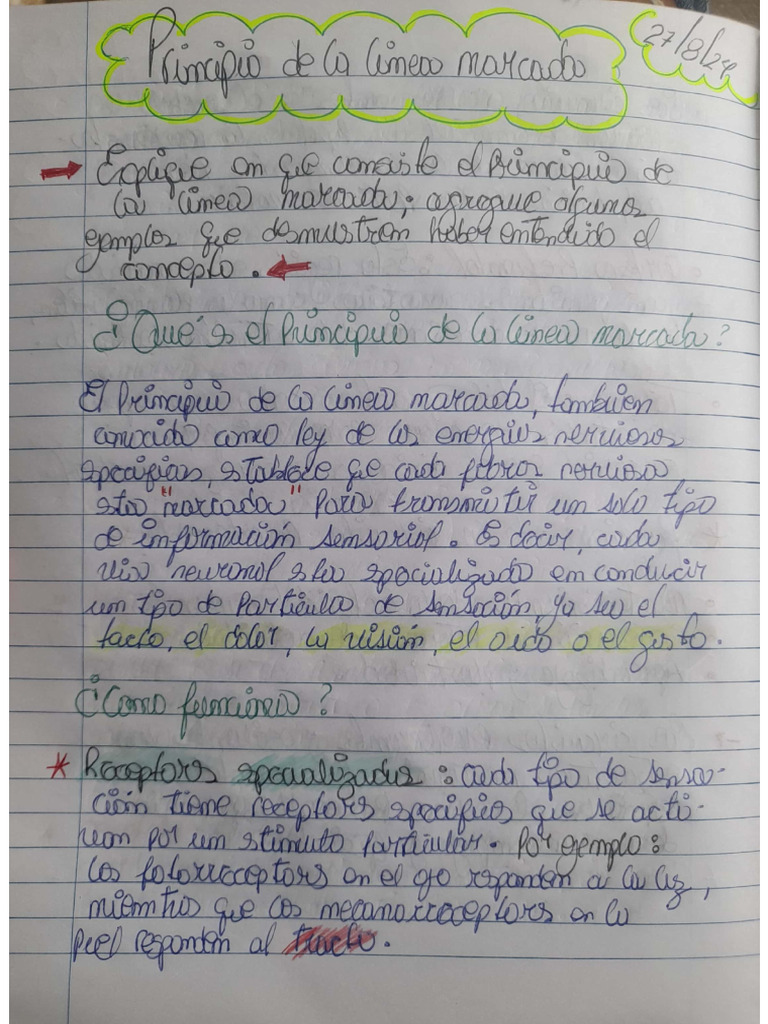 Principio de la linea marcada
27/8/24
Explique en que consiste el Principio de
la linea marcada; agregue algunos
ejemplos que desmuestren haber entendido el
concepto.
¿Qué es el Principio de la linea marcada?
El Principio de la linea marcada, tambien
conocido como ley de las energias nerviosas
especificas, establece que cada fibra nerviosa
esta "marcada" para transmitir un solo tipo
de información sensorial. Es decir, cada
via neuronal esta especializada en conducir
un tipo de particula de sensación, ya sea el
tacto, el dolor, la visión, el oido o el gusto.
¿Como funciona?
* Receptores especializados: cada tipo de sensa-
ción tiene receptores especificos que se acti-
van por un estimulo particular. Por ejemplo:
los fotorreceptores en el ojo responden a la luz,
mientras que los mecanorreceptores en la
piel responden al tacto.